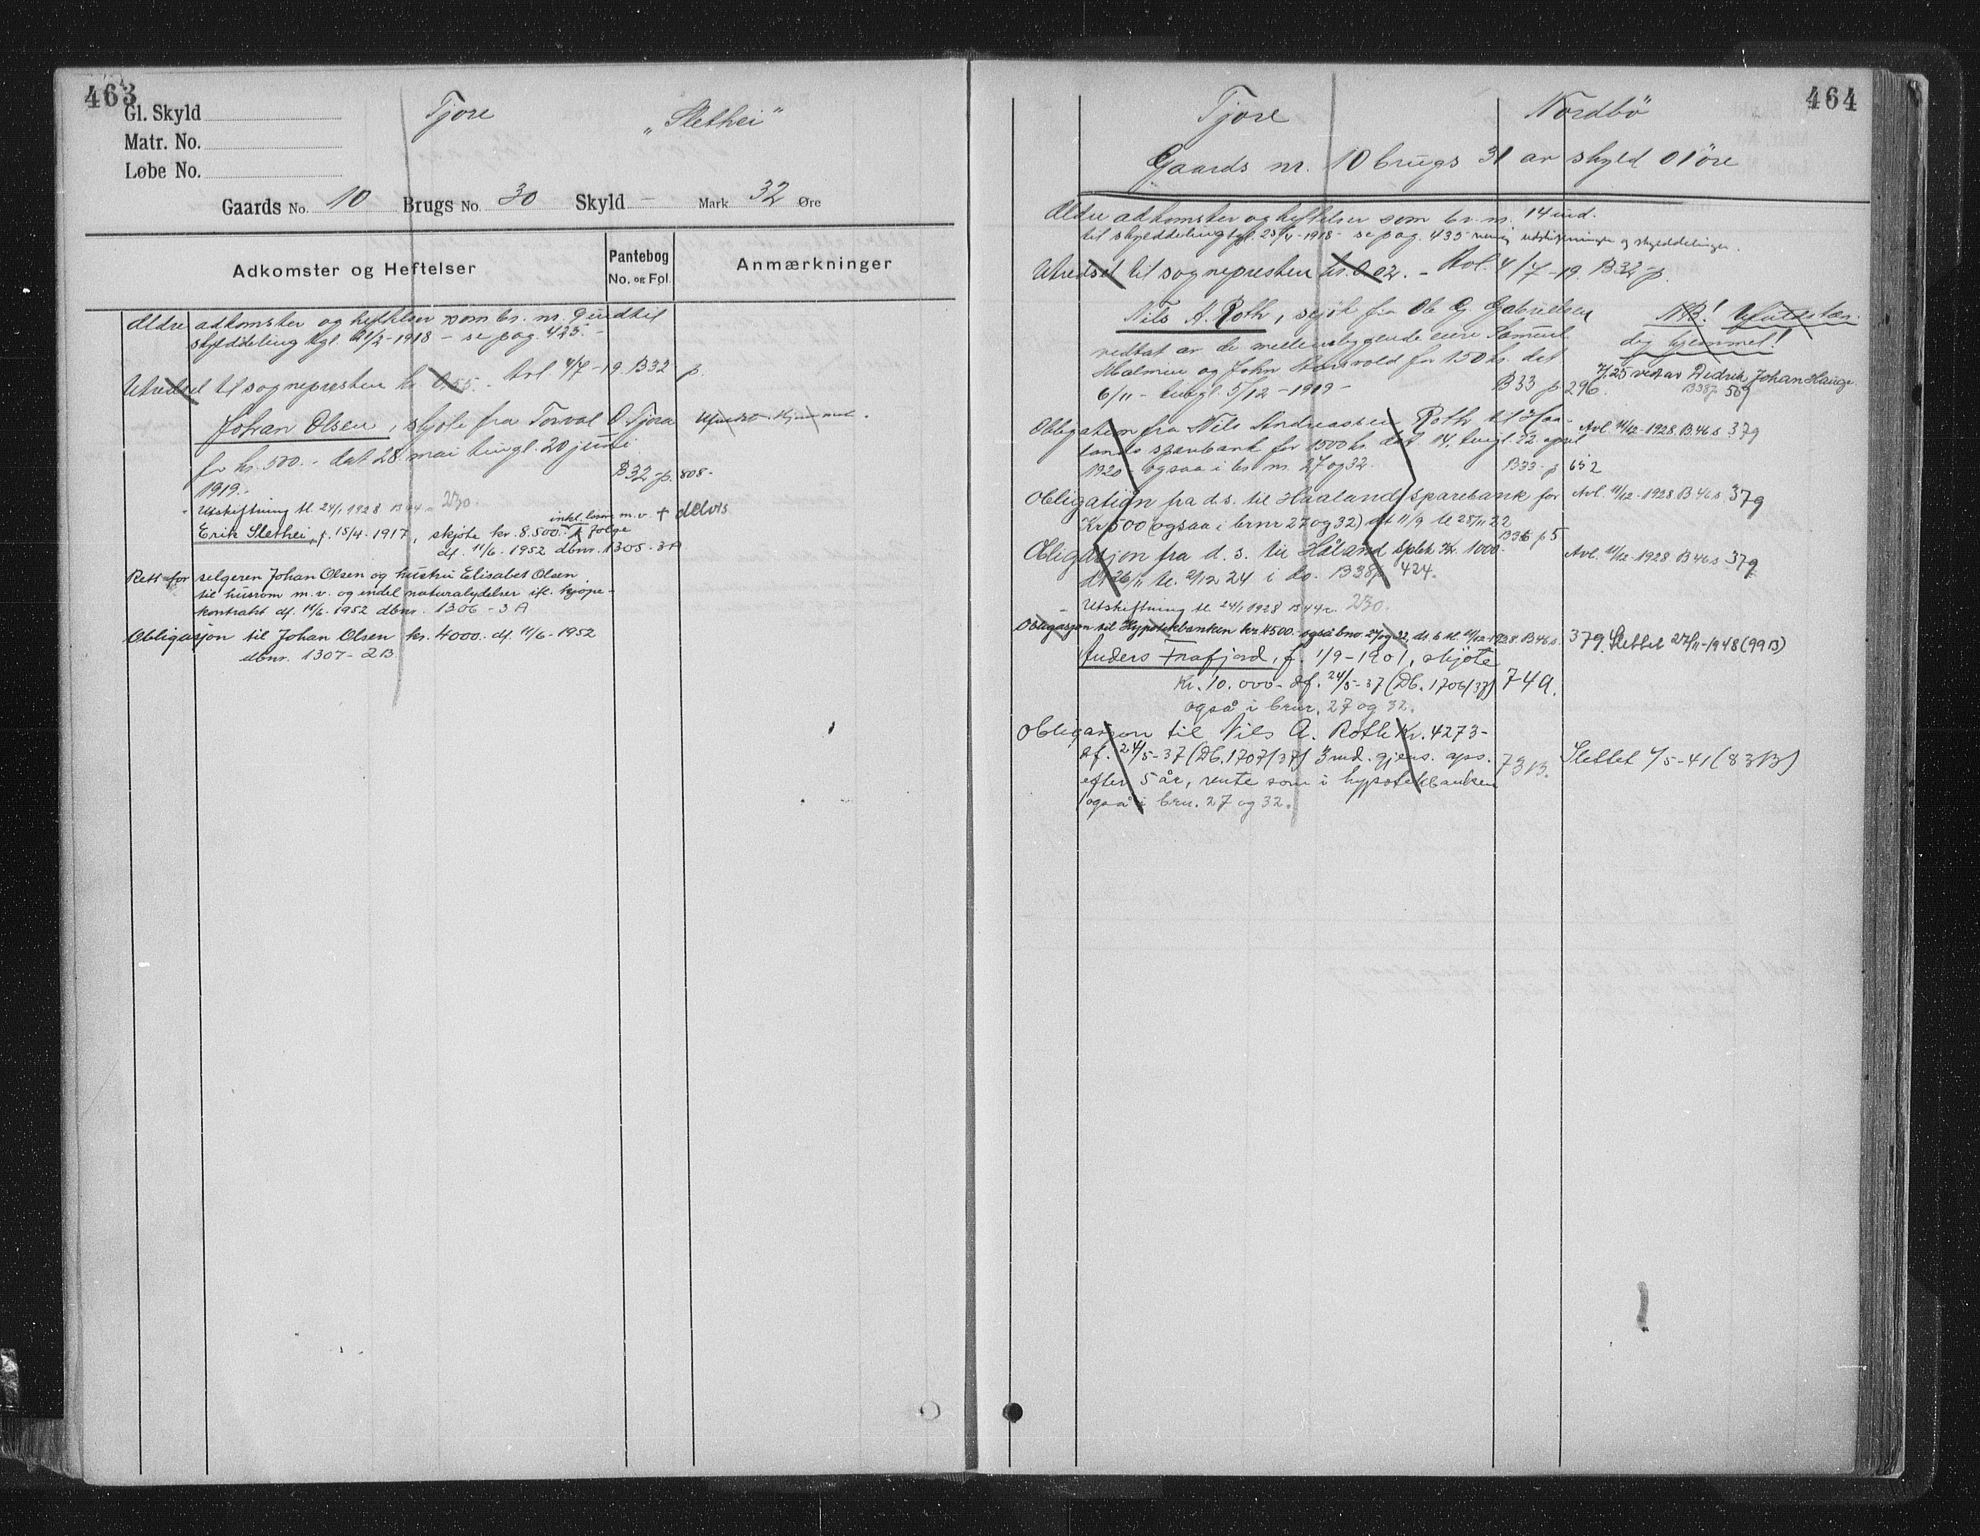 463
Gl. Skyld
Matr. No.
Løbe No.
Tjore „Slethei“
Gaards No. 10 Brugs No. 30 Skyld - Mark 32 Øre
Adkomster og Heftelser
Pantebog
No. og Fol.
Anmærkninger
Ældre adkomster og heftelser som br. nr. 9 indtil
skylddeling tgl. 21/2-1918 - se pag. 425 -
Utredsel til sognepresten kr. 0,55. Avl 4/7-19 B32 p.
Johan Olsen, skjøte fra Torval O. Tjora
for kr. 500.- dat 28 mai tingl. 20 juni
1919.- B32-p. 808-
Utskiftning tl. 24/1 1928 B44 230.
inkl. løsøre m.v. + delvis
Erik Slethei, f. 15/4-1917, skjøte kr. 8.500.- følge
df. 11/6-1952 dbnr. 1305-3A
Rett for selgeren Johan Olsen og hustru Elisabet Olsen
til husrom m.v. og endel naturalydelser ifl. kjøpe-
kontrakt df. 11/6-1952 dbnr. 1306-3A
Obligasjon til Johan Olsen kr. 4000. df. 11/6-1952
dbnr. 1307-2B
464
Tjore Nordbö
Gaards nr. 10 brugs 31 av skyld 01 öre
Ældre adkomster og heftelser som br. nr. 14 ind-
til skylddeling tgl. 25/4-1918 - se pag. 435 utskiftninger og skylddelinger.
Utredsel til sognepresten kr. 0,02. - Avl. 4/7-19 B32-p.
Nils A. Roth, skjöte fra Ole G. Gabrielsen
vedtat av de mellemliggende eiere Samuel
Malmin og John for 150 kr. dat
6/11- tingl. 5/12-1919- B33 p 296.
NB!
dog hjemmel!
vedtar Diedrik Johan Hauge
B38p 589
Obligation fra Nils Andreassen Roth til Haa-
lands sparebank for 1500 kr. dat 14, tingl. 22 april
1920 ogsaa i br. nr. 27 og 32. B33-p 652
Avl. 11/12-1928. B.46 s 379
Obligation fra d.s. til Haaland sparebank for
Kr 500 (ogsaa i brnr 27 og 32) dt 11/9 tl 25/11 22 B36 p5
Avl. 11/12-1928 B 46 s 379
Obligasjon fra d. s. til Håland spbk. kr. 1000.
dt 26/11 tl. 2/12 24 i do. B38p 424.
Avl. 11/12-1928 B 46 s 379
Utskiftning tl. 24/1 1928 B 44 230.
Obligasjon til Hypotekbanken kr. 4500. også bno 27 og 32, dt. 6 tl. 11/12-1928 B 46 s. 379. Slettet 27/11-1948 (99B)
Anders Frafjord, f. 1/9-1901, skjøte
Kr. 10.000- df. 24/5-37 (Db. 1706/37) 74a.
også i brnr. 27 og 32.
Obligasjon til Nils A. Roth Kr. 4273-
df. 24/5-37 (Db. 1707/37) 3 md. gjens. ops.
efter 5 år, rente som i hypotekbanken
også i brn. 27 og 32.
73B.
Slettet /5-41 (83B)